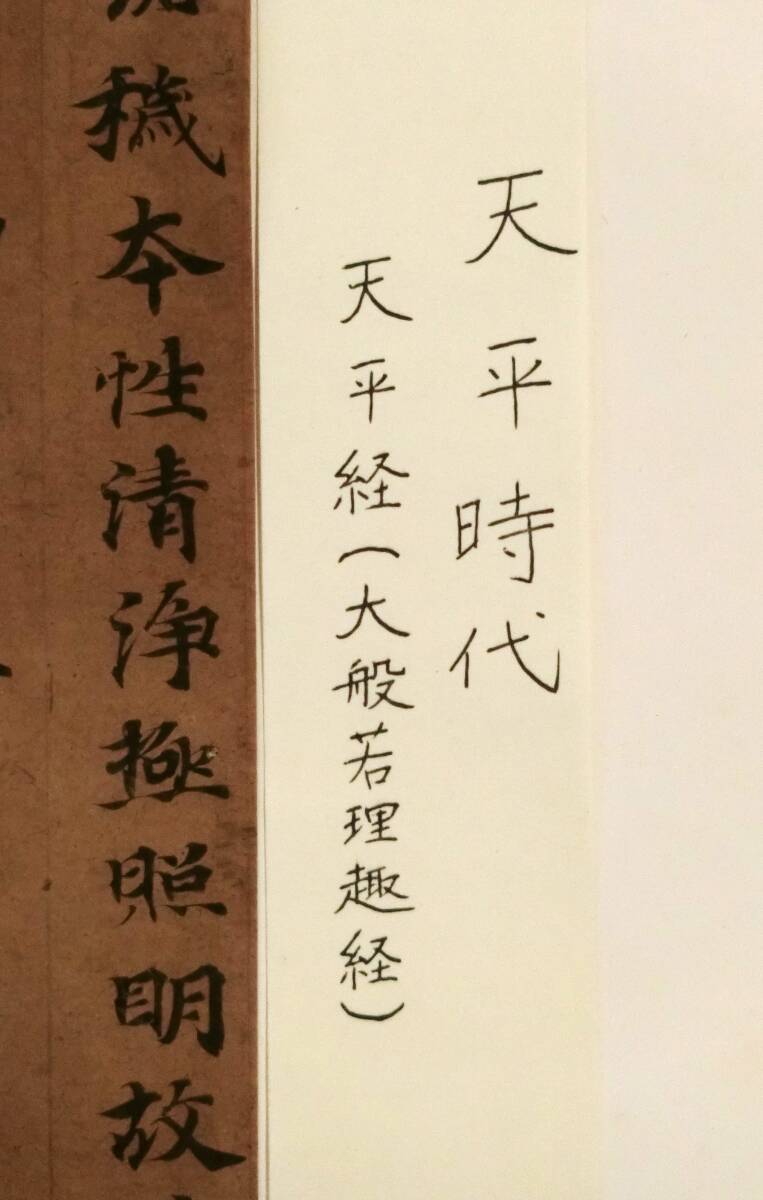 天平時代
天平経(大般若理趣経)
穢本性清浄極照明故